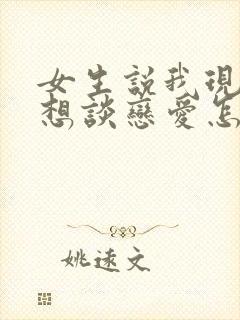 女生説我現
想談戀愛怎
姚遠文